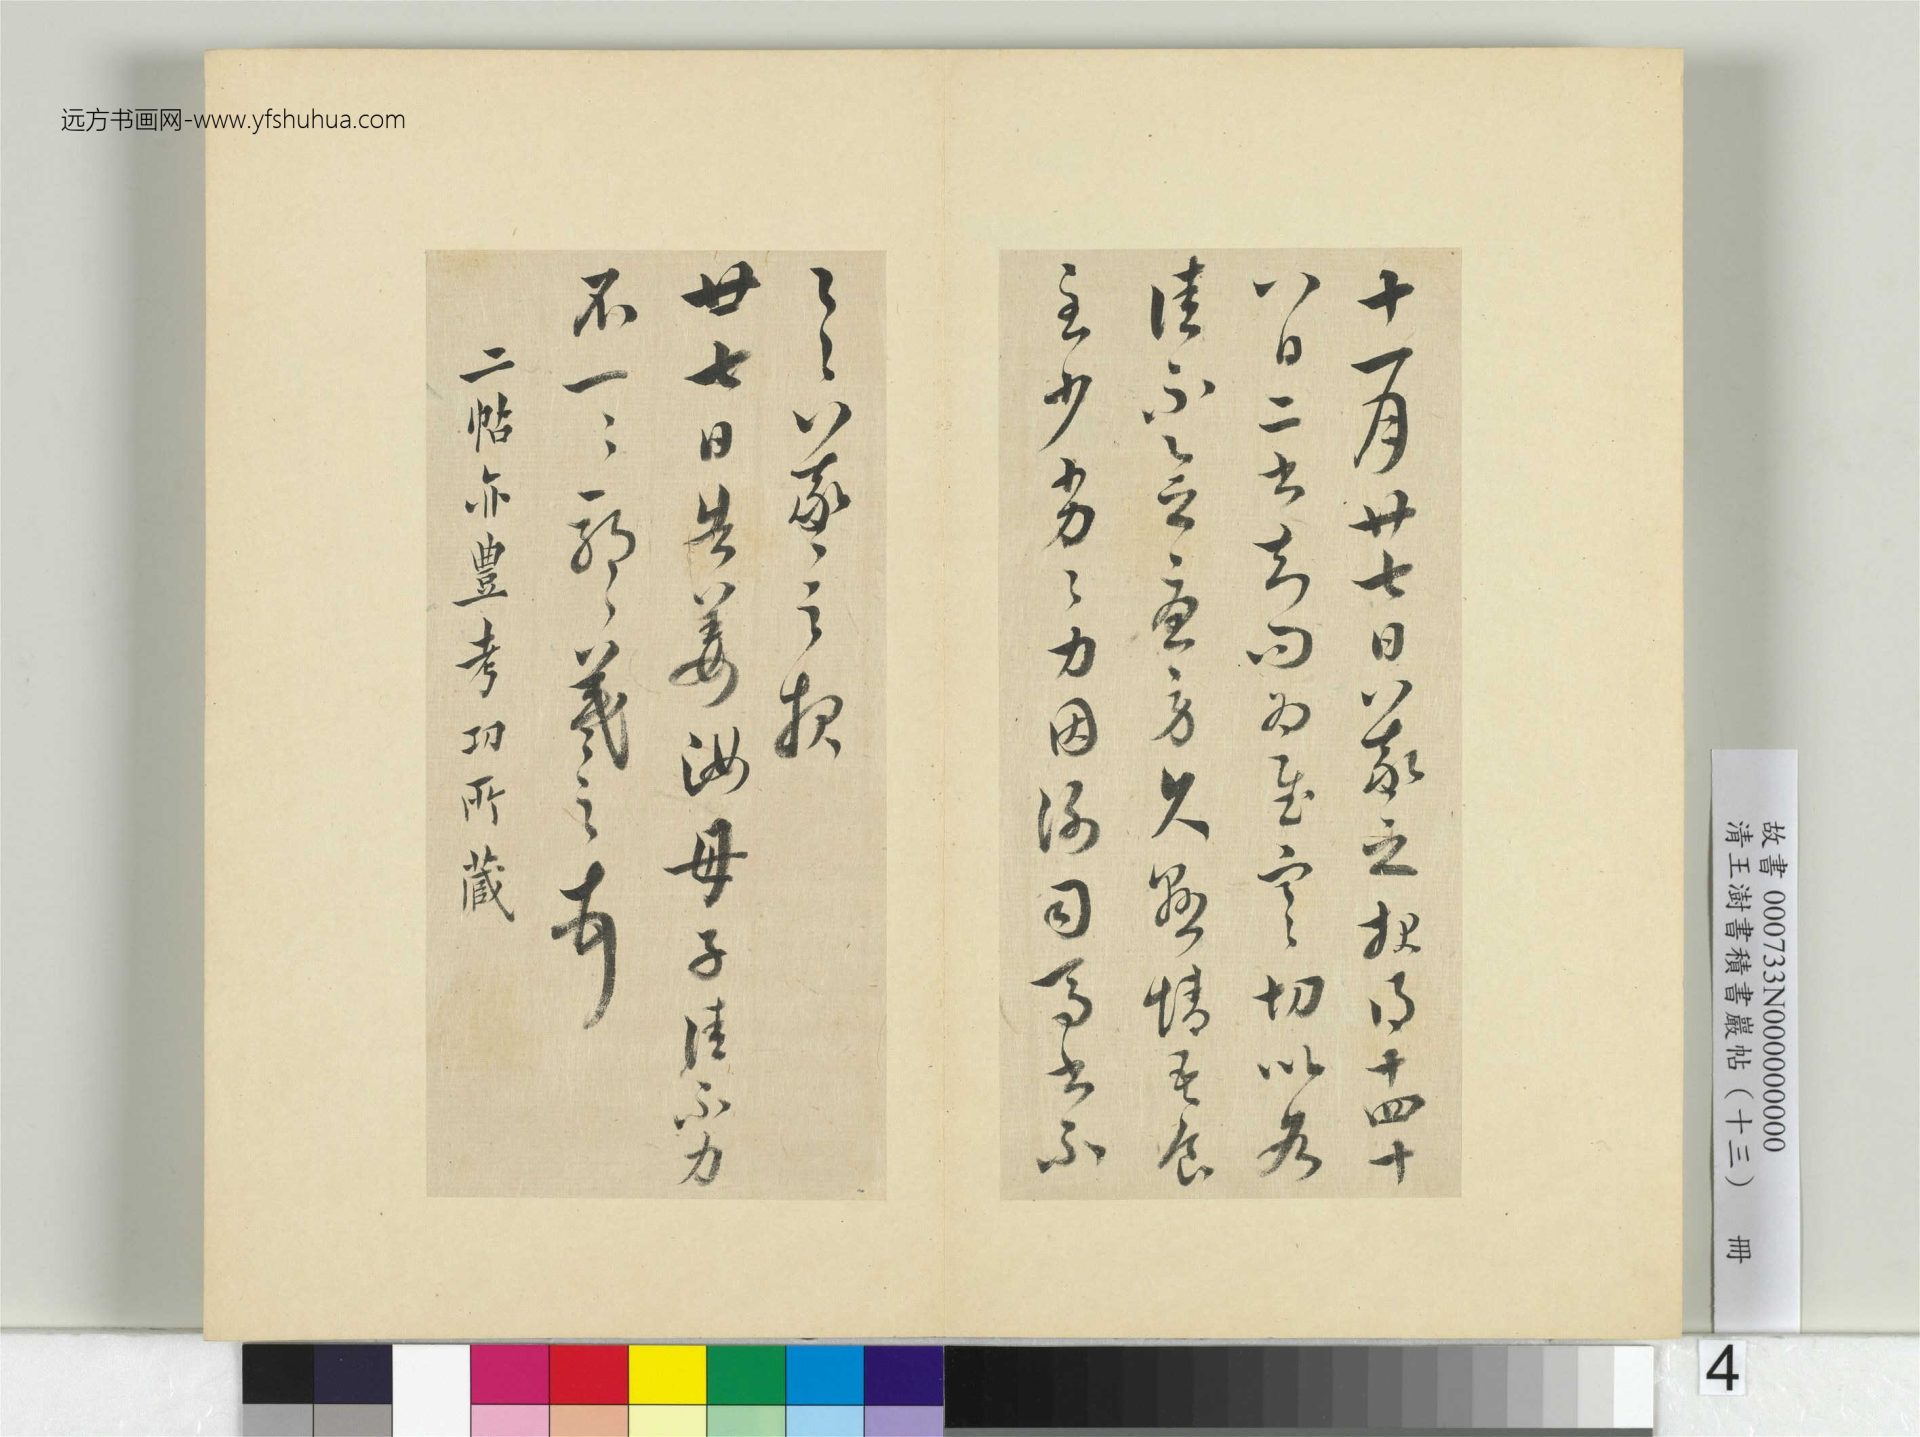 十一月廿七日羲之報得十四十
八日二書知問為慰寒切比各
佳不念憂勞久懸情吾食
至少劣劣力因謝司馬書不
一一羲之報
廿七日告姜汝母子佳不力
不一一耶羲之
二帖亦豐考功所藏
远方书画网-www.yfshuhua.com
故書 000733N000000000
清王澍書積書巖帖(十三) 冊
4